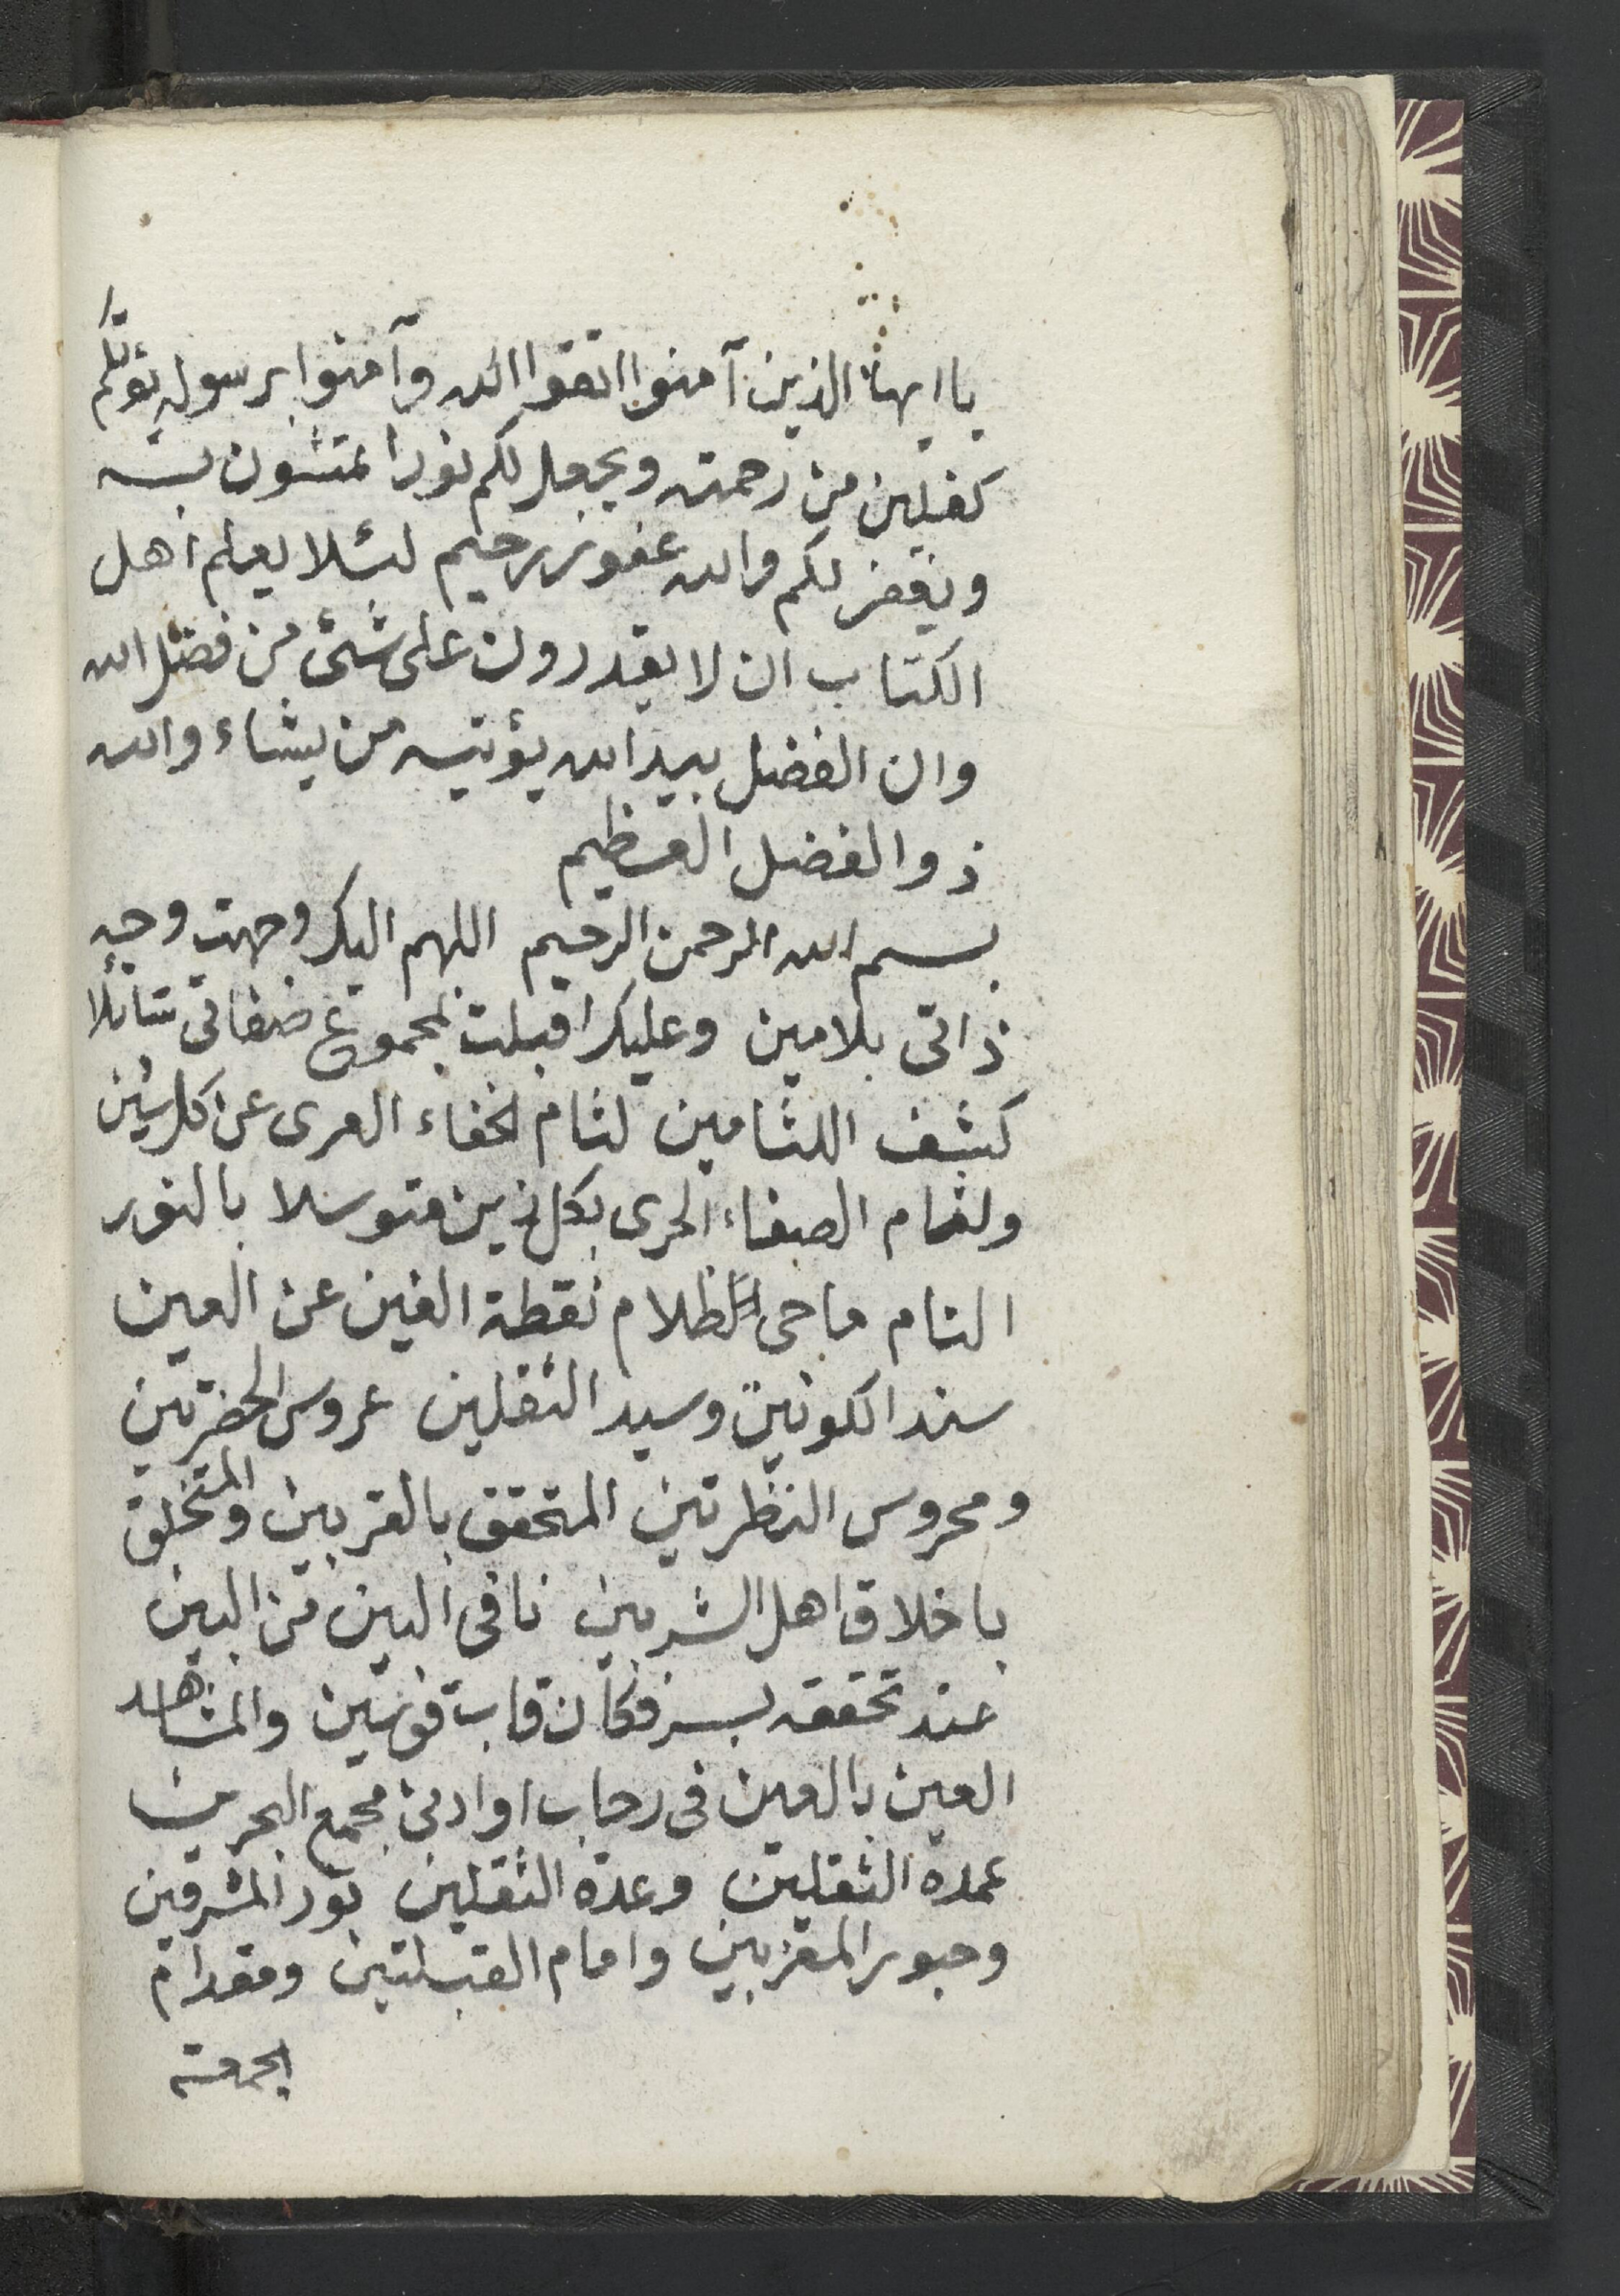 يا ايها الذين آمنوا اتقوا الله وآمنوا برسوله يؤتكم
كفلين من رحمته ويجعل لكم نورا تمشون به
ويغفر لكم والله غفور رحيم لئلا يعلم اهل
الكتاب ان لا يقدرون على شئ من فضل الله
وان الفضل بيد الله يؤتيه من يشاء والله
ذو الفضل العظيم
بسم الله الرحمن الرحيم اللهم اليك وجهت وجه
ذاتى بلامين وعليك اقبلت بمجموع صفاتى سائلا
كشف اللثامين لثام الخفاء العرى عن كل شين
ولثام الصفاء الحرى بكل زين متوسلا بالنور
التام ماحى الظلام نقطة الغين عن العين
سند الكونين وسيد الثقلين عروس الحضرتين
ومحروس النظرتين المتحقق بالقربين والمتخلق
باخلاق اهل الشربين نافى البين من البين
عند تحققه بسر فكان قاب قوسين والمشاهد
العين بالعين فى رحاب او ادنى مجمع البحرين
عمدة الثقلين وعدة الثقلين نور المشرقين
وحبور المغربين وامام القبلتين ومقدام